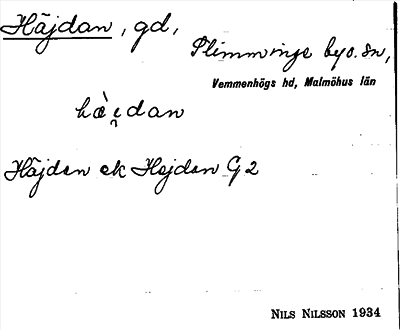 Häjdan, gd,
Slimminge by o. sn,
Vemmenhögs hd, Malmöhus län
hæ̀i̯dan
Häjdan ek Hejdan G 2
NILS NILSSON 1934